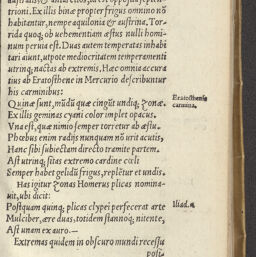 trioni. Ex illis binæ propter frigus omnino nō
habitantur, nempe aquilonia & austrina. Tor-
rida quoq; ob uehementiam æstus nulli homi-
num peruia est. Duas autem temperatas inhabi
tari aiunt, utpote mediocritatem temperamenti
utrinq; nactas ab extremis. Hæc omnia accura
tius ab Eratosthene in Mercurio describuntur
his carminibus:
Quinæ sunt, mūdū quæ cingūt undiq;, zonæ.
Eratosthenis
carmina.
Ex illis geminas cyani color implet opacus.
Vna est, quæ nimio semper torretur ab æstu.
Phœbus enim radijs nunquam nō urit acutis,
Hanc sibi subiectam directo tramite partem.
Ast utrinq; sitas extremo cardine cœli
Semper habet gelidū frigus, repletur et undis.
Has igitur zonas Homerus plicas nomina-
uit, ubi dicit:
Postquam quinq; plicas clypei perfecerat arte
Iliad.
Mulciber, ære duas, totidem stannoq; nitente,
Ast unam ex auro.—
Extremas quidem in obscuro mundi recessu